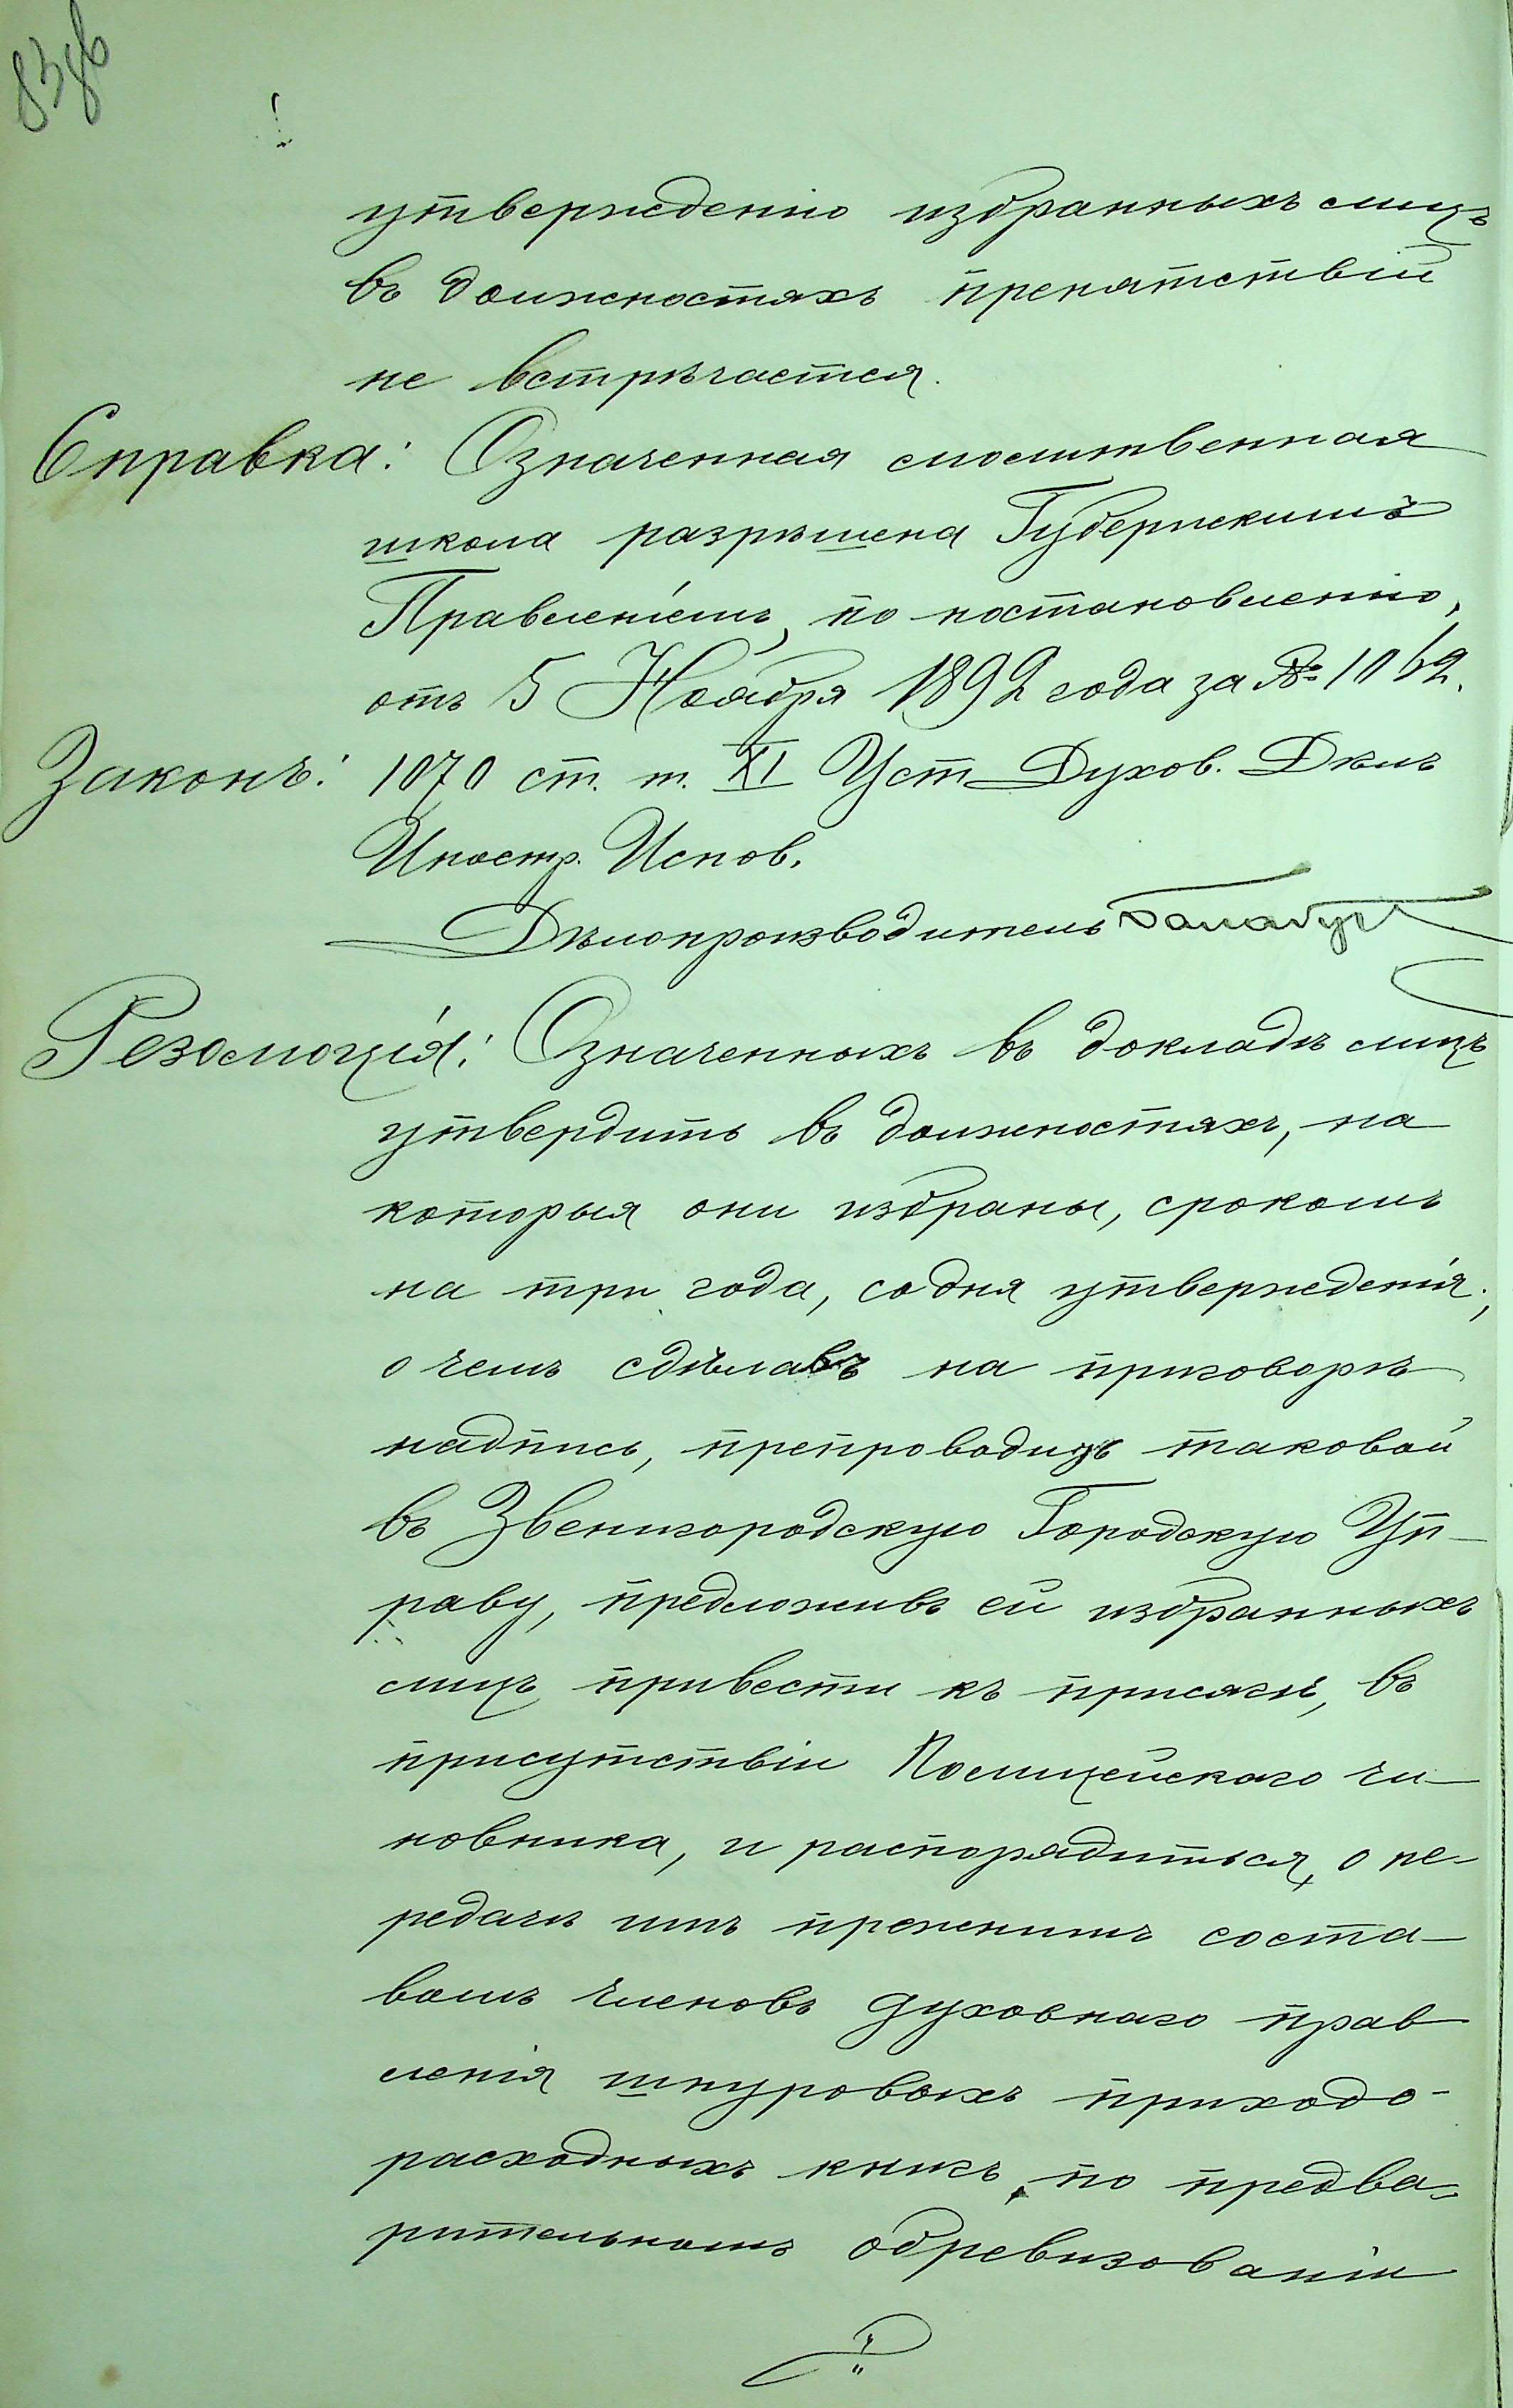 83 об
утвержденію избранныхъ лицъ
въ должностяхъ препятствій
не встрѣчается.
Справка: Означенная молитвенная
школа разрѣшена Губернскимъ
Правленіемъ, по постановленію,
отъ 5 Ноября 1892 года за №
Законъ: 1070 ст. т. XI Уст Духов. Дѣлъ
Иностр. Испов.
Дѣлопроизводитель
Резолюція: Означенныхъ въ докладѣ лицъ
утвердить въ должностяхъ, на
которыя они избраны, срокомъ
на три года, со дня утвержденія;
о чемъ сдѣлавъ на приговорѣ
надпись, препроводить таковой
въ Звенигородскую Городскую Уп-
раву, предложивъ ей избранныхъ
лицъ привести къ присягѣ, въ
присутствіи Полицейскаго чи-
новника, и распорядиться, о пе-
редачѣ имъ прежнимъ соста-
вомъ членовъ духовнаго прав
ленія шнуровыхъ приходо-
расходныхъ книгъ, по предва-
рительномъ обревизованіи